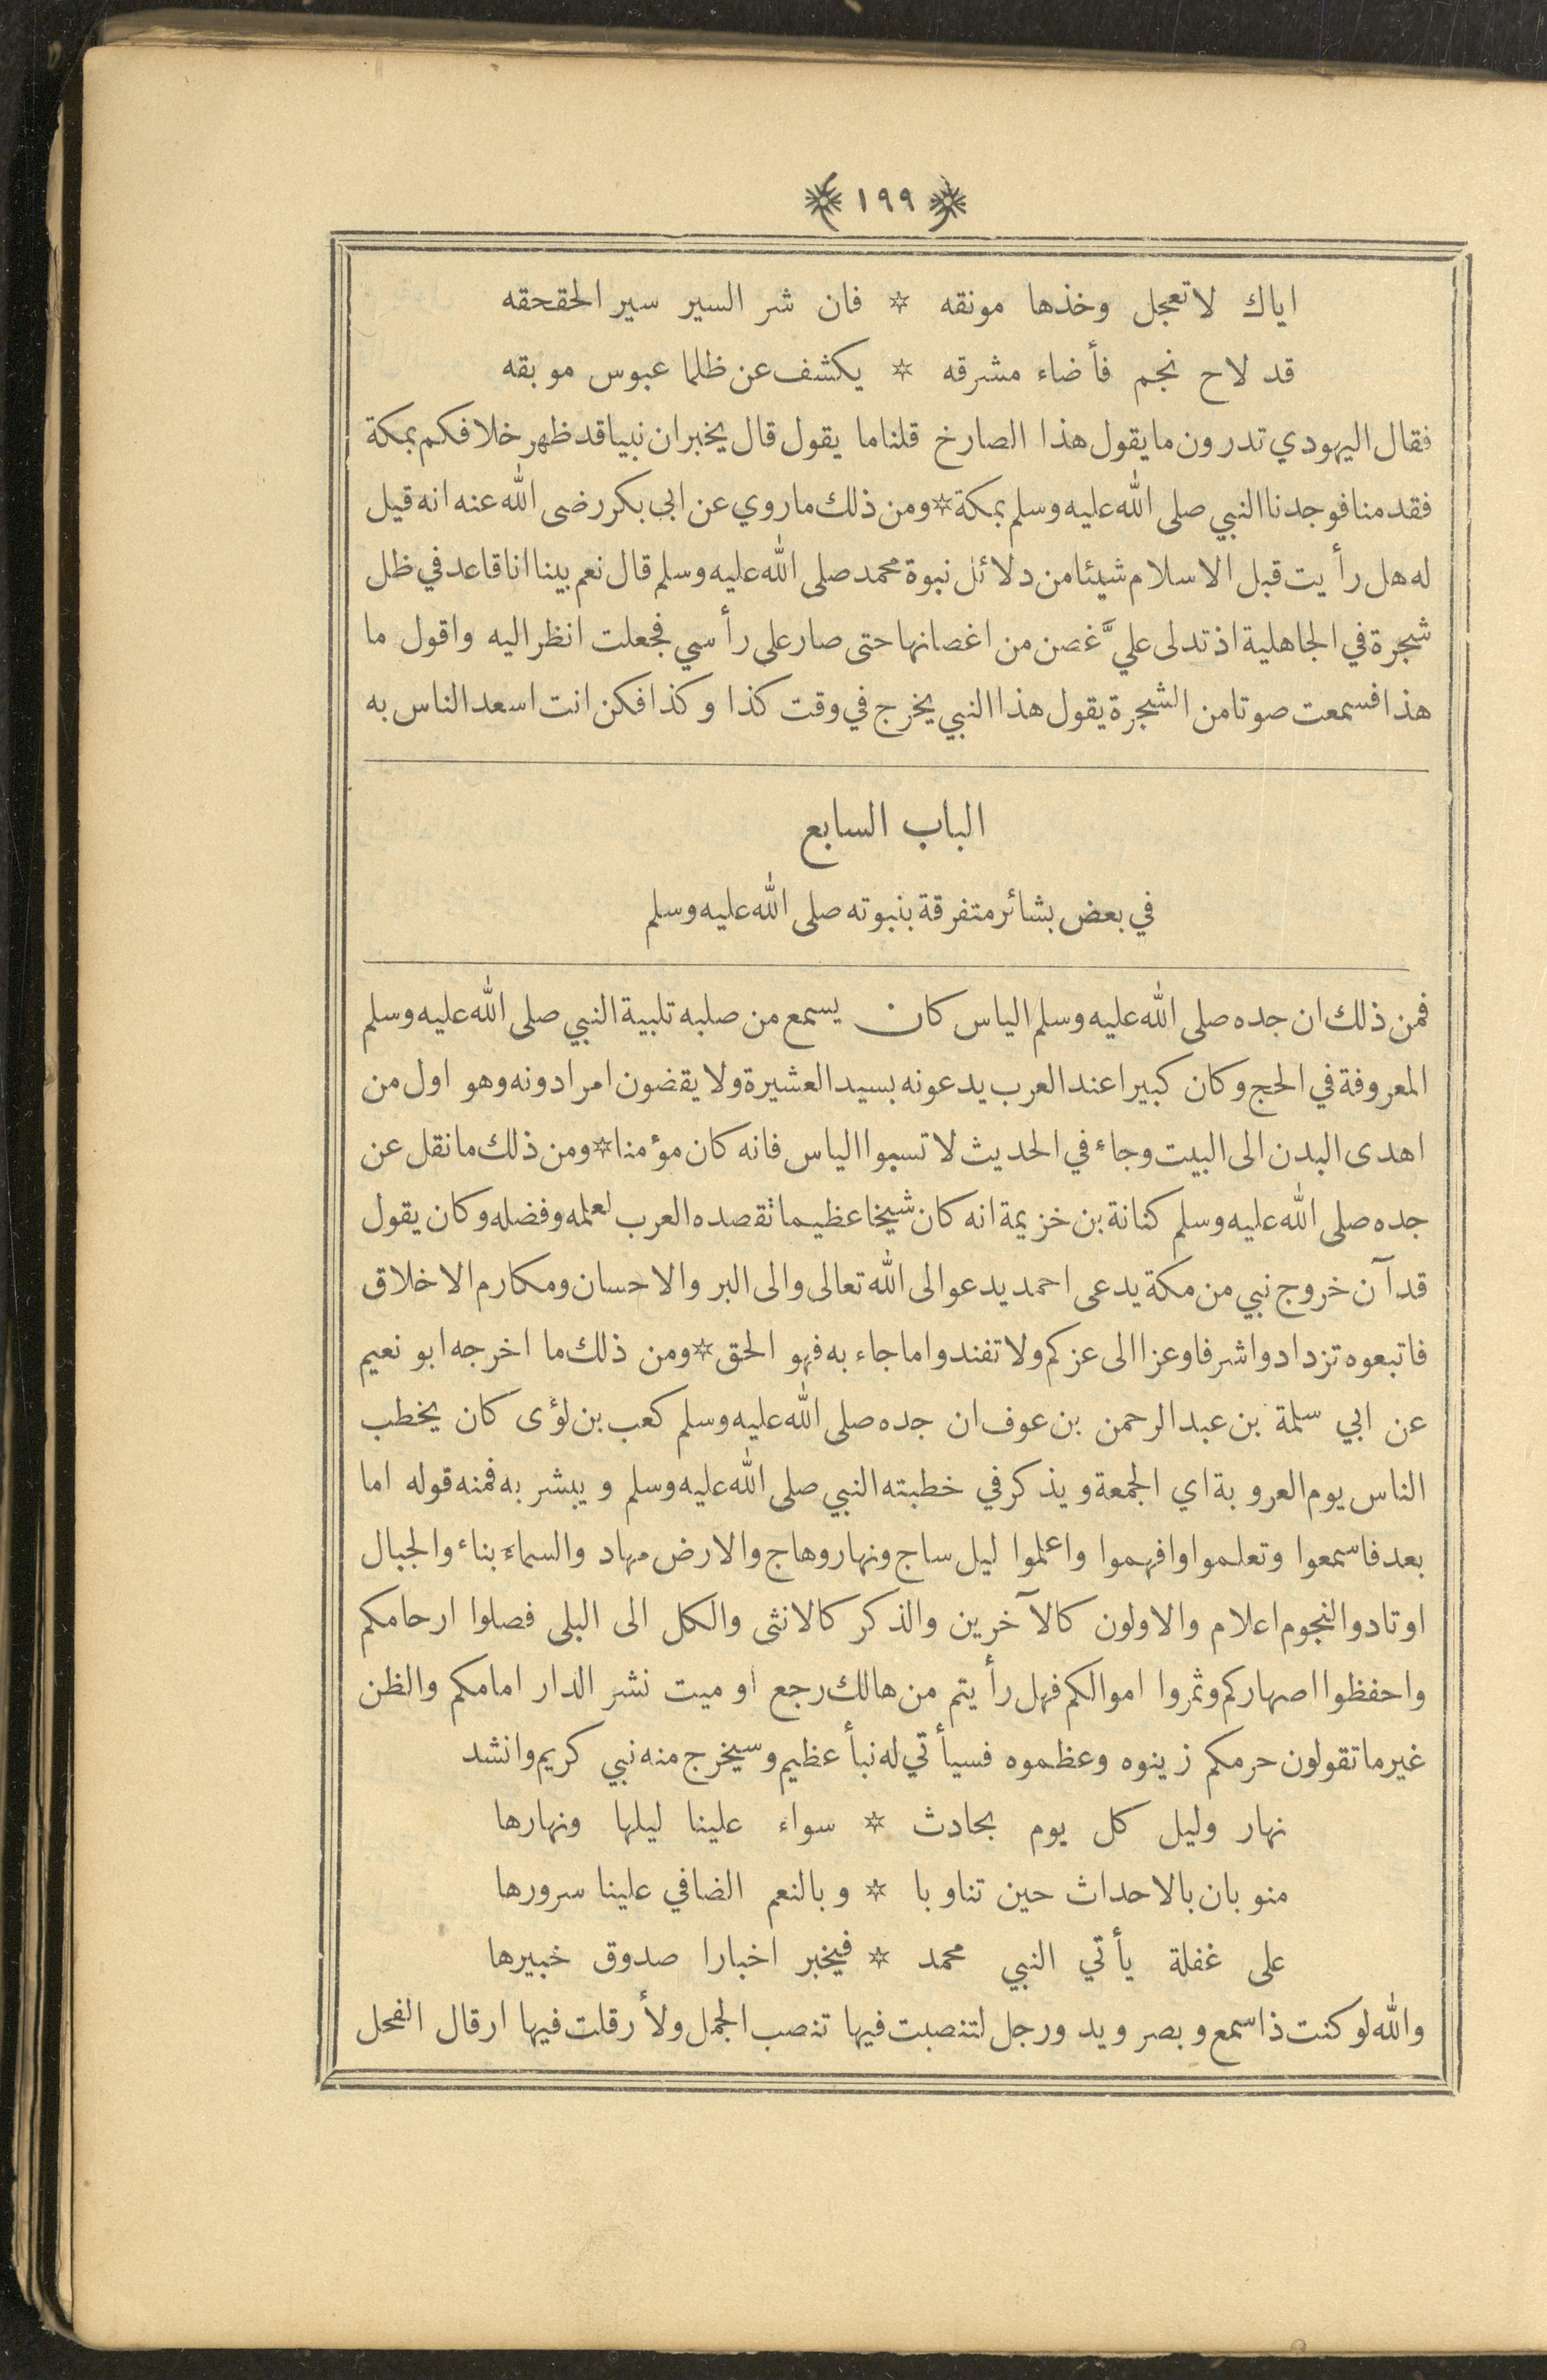 ١٩٩
اياك لا تعجل وخذها مونقه * فان شر السير سير الحقحقه
قد لاح نجم فأضاء مشرقه * يكشف عن ظلما عبوس موبقه
فقال اليهودي تدرون ما يقول هذا الصارخ قلنا ما يقول قال يخبر ان نبيا قد ظهر خلافكم بمكة
فقدمنا فوجدنا النبي صلى الله عليه وسلم بمكة * ومن ذلك ما روي عن ابي بكر رضى الله عنه انه قيل
له هل رأيت قبل الاسلام شيئا من دلائل نبوة محمد صلى الله عليه وسلم قال نعم بينا انا قاعد في ظل
شجرة في الجاهلية اذ تدلى عليَّ غصن من اغصانها حتى صار على رأسي فجعلت انظر اليه واقول ما
هذا فسمعت صوتا من الشجرة يقول هذا النبي يخرج في وقت كذا وكذا فكن انت اسعد الناس به
الباب السابع
في بعض بشائر متفرقة بنبوته صلى الله عليه وسلم
فمن ذلك ان جده صلى الله عليه وسلم الياس كان يسمع من صلبه تلبية النبي صلى الله عليه وسلم
المعروفة في الحج وكان كبيرا عند العرب يدعونه بسيد العشيرة ولا يقضون امرا دونه وهو اول من
اهدى البدن الى البيت وجاء في الحديث لا تسبوا الياس فانه كان مؤمنا * ومن ذلك ما نقل عن
جده صلى الله عليه وسلم كنانة بن خزيمة انه كان شيخا عظيما تقصده العرب لعلمه وفضله وكان يقول
قد آن خروج نبي من مكة يدعى احمد يدعو الى الله تعالى والى البر والاحسان ومكارم الاخلاق
فاتبعوه تزدادوا شرفا وعزا الى عزكم ولا تفندوا ما جاء به فهو الحق * ومن ذلك ما اخرجه ابو نعيم
عن ابي سلمة بن عبد الرحمن بن عوف ان جده صلى الله عليه وسلم كعب بن لؤى كان يخطب
الناس يوم العروبة اي الجمعة ويذكر في خطبته النبي صلى الله عليه وسلم ويبشر به فمنه قوله اما
بعد فاسمعوا وتعلموا وافهموا واعلموا ليل ساج ونهار وهاج والارض مهاد والسماء بناء والجبال
اوتاد والنجوم اعلام والاولون كالآخرين والذكر كالانثى والكل الى البلى فصلوا ارحامكم
واحفظوا اصهاركم وثمروا اموالكم فهل رأيتم من هالك رجع او ميت نشر الدار امامكم والظن
غير ما تقولون حرمكم زينوه وعظموه فسيأتي له نبأ عظيم وسيخرج منه نبي كريم وانشد
نهار وليل كل يوم بحادث * سواء علينا ليلها ونهارها
منوبان بالاحداث حين تناوبا * وبالنعم الضافي علينا سرورها
على غفلة يأتي النبي محمد * فيخبر اخبارا صدوق خبيرها
والله لو كنت ذا سمع وبصر ويد ورجل لتنصبت فيها تنصب الجمل ولأرقلت فيها ارقال الفحل